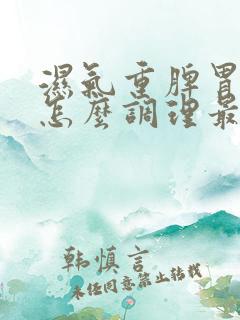 濕氣重脾胃
怎麽調理最
韓慎言
未经同意禁止转载